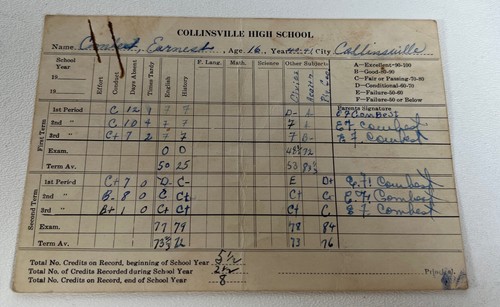 COLLINSVILLE HIGH SCHOOL
Name Combest, Earnest, Age 16, Year City Collinsville
School Year
19
19
Effort Conduct Days Absent Times Tardy English History F. Lang. Math. Science Other Subjects Civics Parents Signature
A—Excellent-90-100
B—Good-80-90
C—Fair or Passing-70-80
D—Conditional-60-70
E—Failure-50-60
F—Failure-50 or Below
First Term
1st Period C 12 9 7 7 D- E F Combest
2nd " C 10 4 7 7 7 E F Combest
3rd " C+ 7 2 7 7 7 B- E F Combest
Exam. 0 0 72
Term Av. 50 25 53
Second Term
1st Period C+ 7 0 D C- E D+ E. F. Combest
2nd " B- 8 0 C C+ C C E. F. Combest
3rd " B+ 1 0 C+ C+ C+ C E F Combest
Exam 77 79 78 84
Term Av. 73 72 73 76
Total No. Credits on Record, beginning of School Year 5½
Total No. of Credits Recorded during School Year 2½
Total No. Credits on Record, end of School Year 8
Principal.